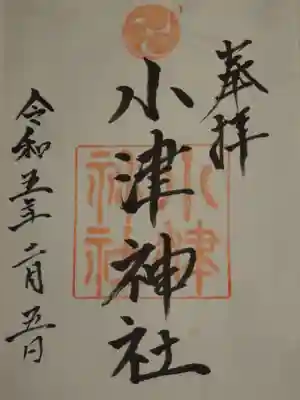 奉拝
小津神社
小津神社
令和五年二月五日